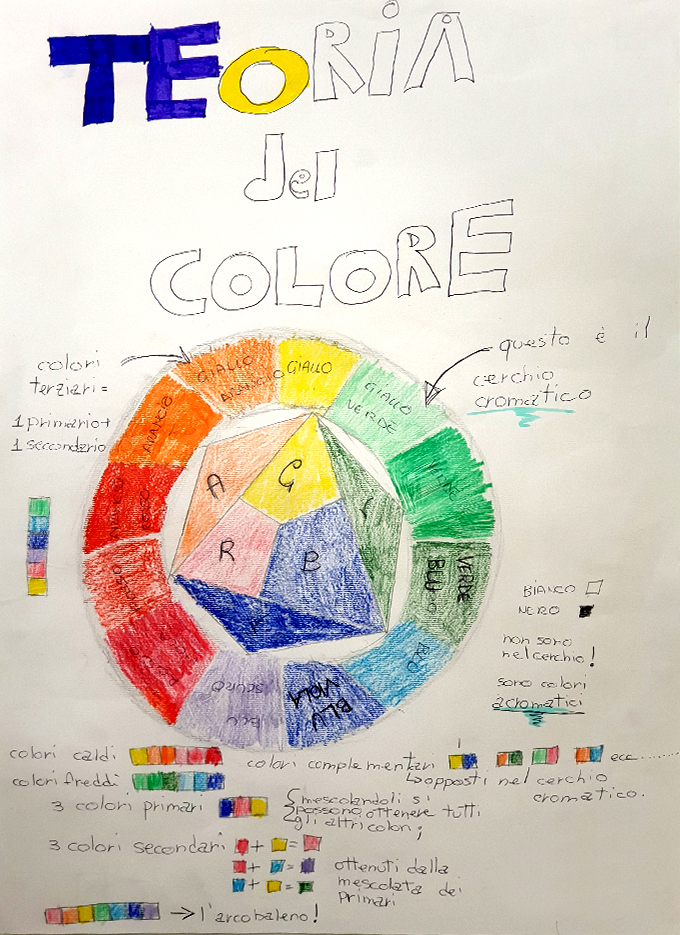 TEORIA
del
COLORE
colori
terziari =
1 primario +
1 secondario
questo è il
cerchio
cromatico
GIALLO
ARANCIO
GIALLO
GIALLO
VERDE
ARANCIO
VERDE
BLU
BLU
VIOLA
BLU
SCURO
A
G
R
B
BIANCO
NERO
non sono
nel cerchio!
sono colori
acromatici
colori caldi
colori freddi
colori complementari
ecc.......
opposti nel cerchio
cromatico.
3 colori primari
mescolandoli si
possono ottenere tutti
gli altri colori;
3 colori secondari
+ =
+ =
+ =
ottenuti dalla
mescolata dei
Primari
→ l'arcobaleno!